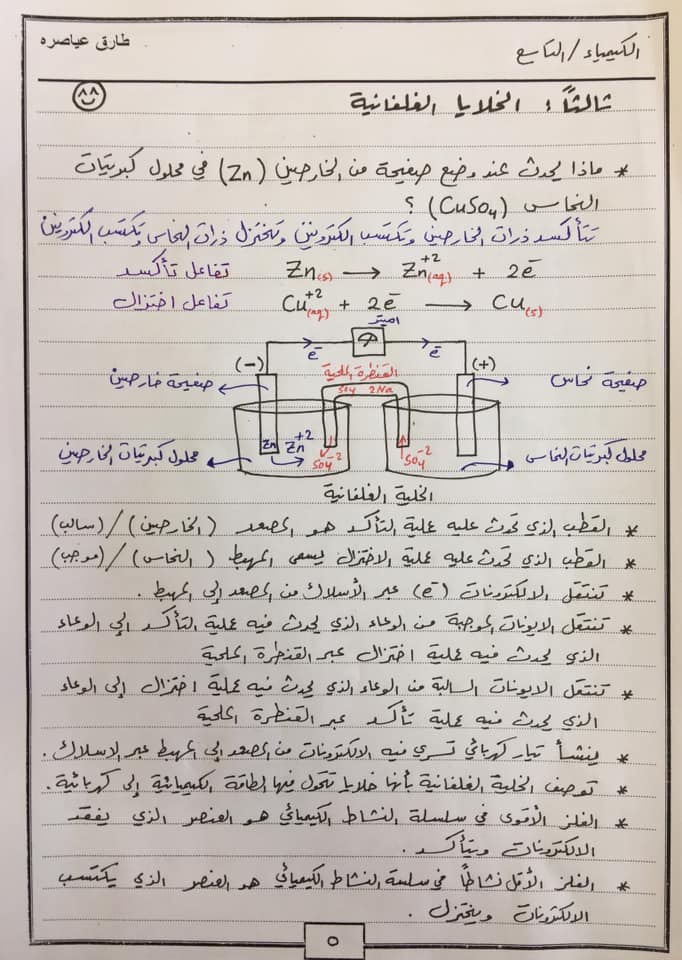 طارق عياصره
الكيمياء / التاسع
ثالثاً: الخلايا الغلفانية
* ماذا يحدث عند وضع صفيحة من الخارصين (Zn) في محلول كبريتات
النحاس (CuSO4) ؟
تتأكسد ذرات الخارصين وتكتسب الكترونين وتختزل ذرات النحاس وتكتسب الكترونين
تفاعل تأكسد Zn(s) → Zn+2(aq) + 2e-
تفاعل اختزال Cu+2(aq) + 2e- → Cu(s)
اميتر
e- e-
(-) (+)
القنطرة الملحية
SO4 2Na
صفيحة خارصين
صفيحة نحاس
Zn Zn+2
SO4-2 SO4-2
محلول كبريتات الخارصين
محلول كبريتات النحاس
الخلية الغلفانية
* القطب الذي تحدث عليه عملية التأكسد هو المصعد (الخارصين) / (سالب)
* القطب الذي تحدث عليه عملية الاختزال يسمى المهبط (النحاس) / (موجب)
* تنتقل الالكترونات (e-) عبر الأسلاك من المصعد إلى المهبط .
* تنتقل الايونات الموجبة من الوعاء الذي يحدث فيه عملية التأكسد إلى الوعاء
الذي يحدث فيه عملية اختزال عبر القنطرة الملحية
* تنتقل الايونات السالبة من الوعاء الذي يحدث فيه عملية اختزال إلى الوعاء
الذي يحدث فيه عملية تأكسد عبر القنطرة الملحية
* ينشأ تيار كهربائي تسري فيه الالكترونات من المصعد إلى المهبط عبر الاسلاك .
* توصف الخلية الغلفانية بأنها خلايا تتحول فيها الطاقة الكيميائية إلى كهربائية .
* الفلز الأقوى في سلسلة النشاط الكيميائي هو العنصر الذي يفقد
الالكترونات ويتأكسد .
* الفلز الأقل نشاطاً في سلسلة النشاط الكيميائي هو العنصر الذي يكتسب
الالكترونات ويختزل .
٥